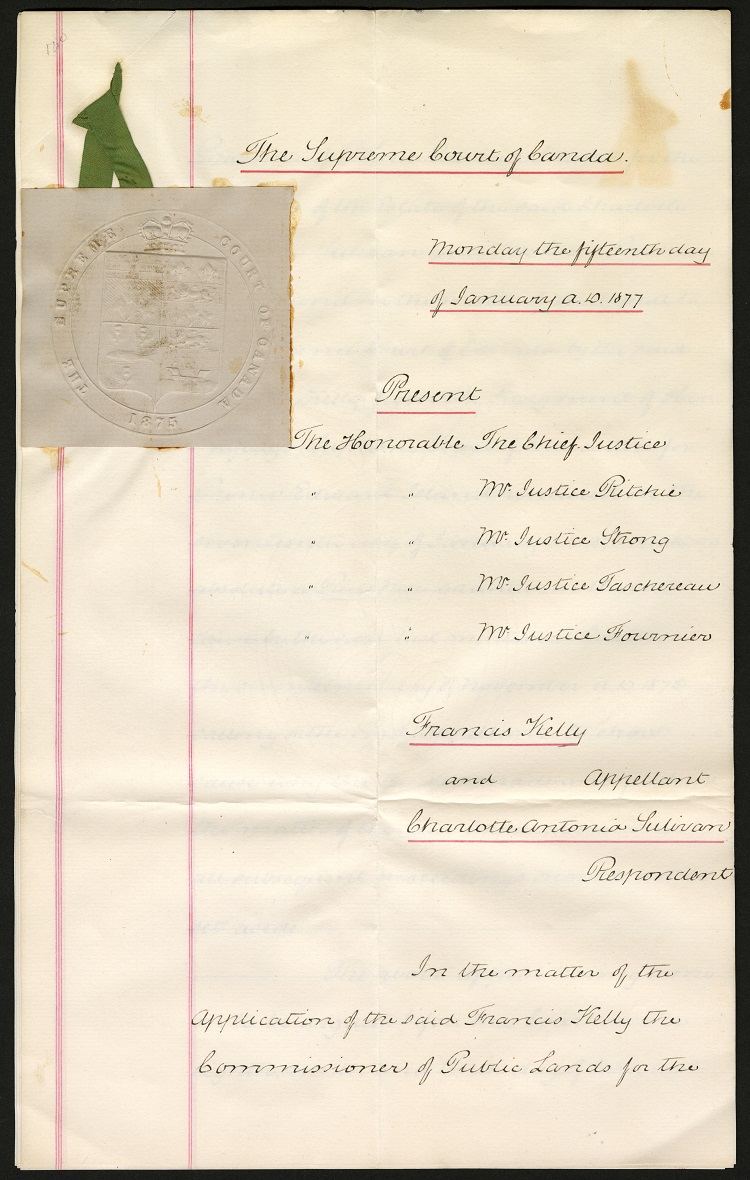 The Supreme Court of Canda.
THE SUPREME COURT OF CANADA
1875
Monday the fifteenth day
of January A.D. 1877
Present
The Honorable The Chief Justice
" " Mr. Justice Ritchie
" " Mr. Justice Strong
" " Mr. Justice Taschereau
" " Mr. Justice Fournier
Francis Kelly
and Appellant
Charlotte Antonia Sulivan
Respondent
In the matter of the
Application of the said Francis Kelly the
Commissioner of Public Lands for the